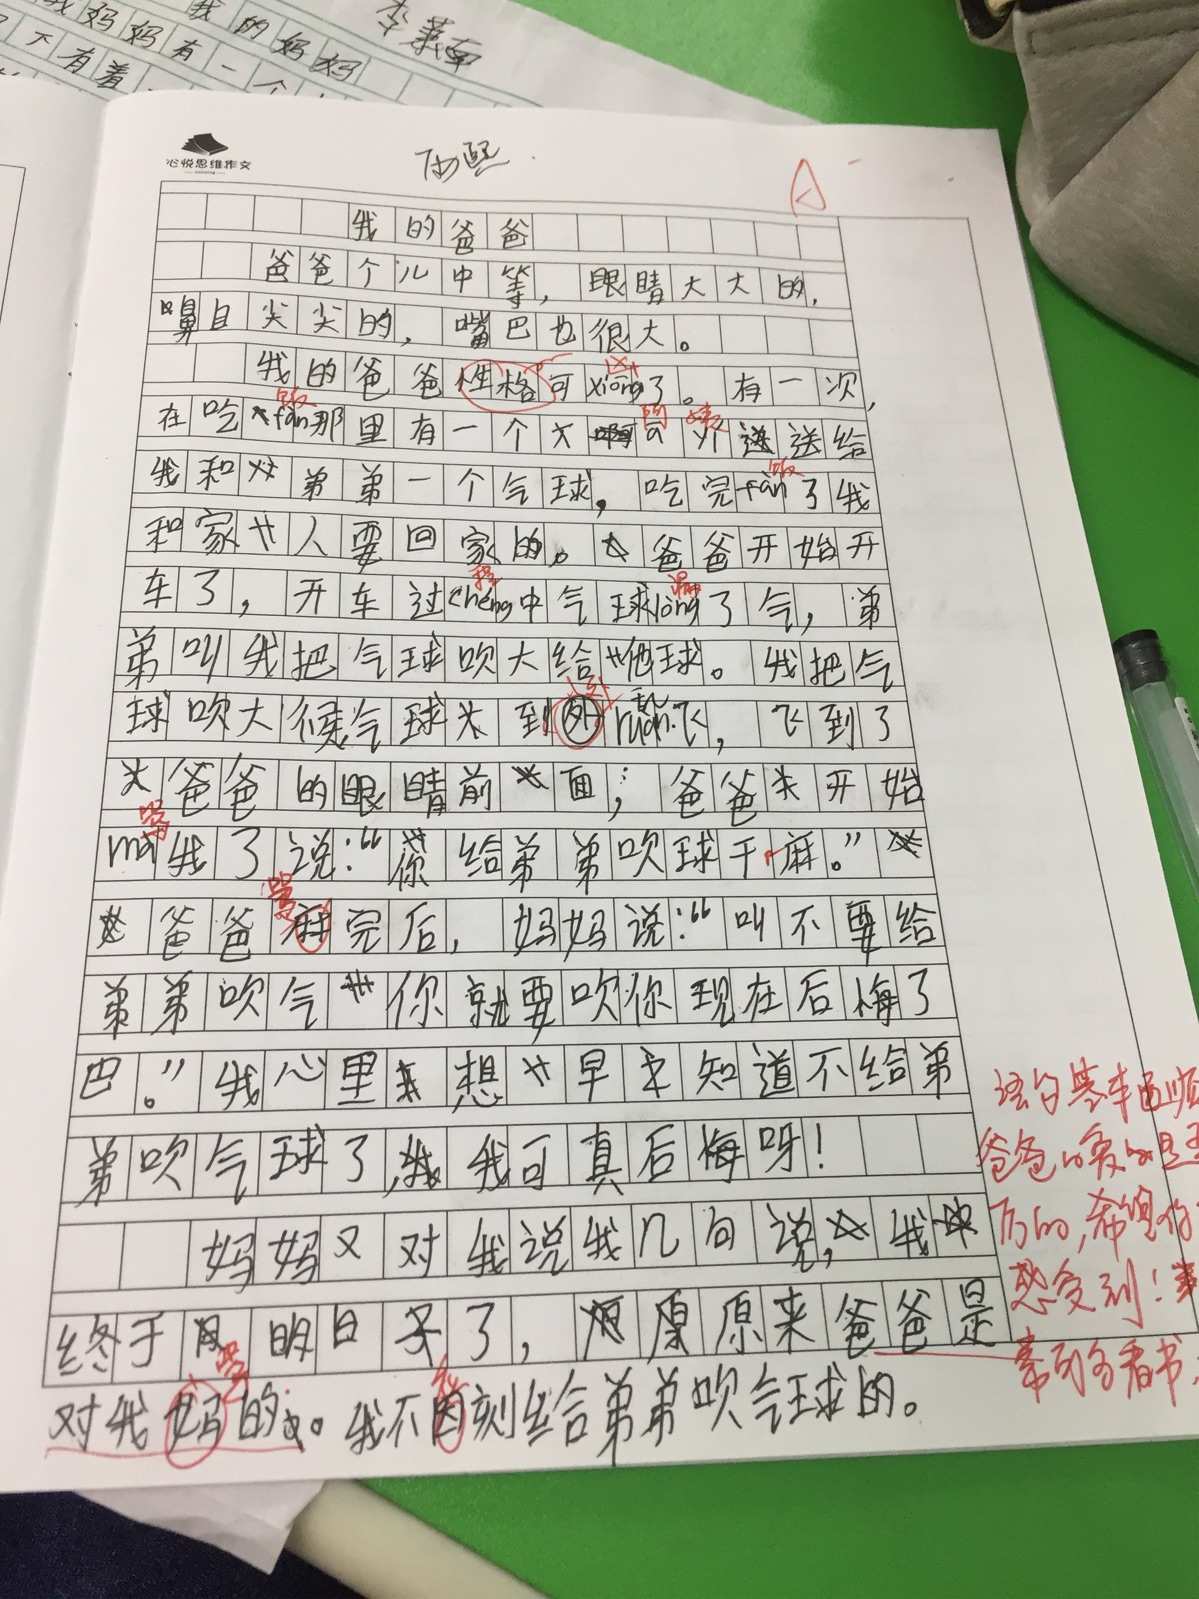 我的妈妈
我妈妈有一个
不有着
心悦思维作文
A-
我的爸爸
爸爸个儿中等，眼睛大大的，
鼻自尖尖的，嘴巴也很大。
我的爸爸性格可xiōng了。有一次，
凶
在吃fàn那里有一个大a yí送给
饭 阿 姨
我和弟弟一个气球，吃完fàn了我
饭
和家人要回家的。爸爸开始开
车了，开车过chéng中气球lòng了气，弟
程 漏
弟叫我把气球吹大给他球。我把气
球吹大候气球到外ruàn飞，飞到了
到处 乱
爸爸的眼睛前面；爸爸开始
mà我了说：“你给弟弟吹球干麻。”
骂
爸爸麻完后，妈妈说：“叫不要给
骂
弟弟吹气你就要吹你现在后悔了
巴。”我心里想早知道不给弟
弟吹气球了，我可真后悔呀！
妈妈又对我说我几句说，我
终于明日了，原原来爸爸是
对我妈的。我不因刻给弟弟吹气球的。
语句基本通顺
爸爸的爱
的，希望你
感受到！
看书